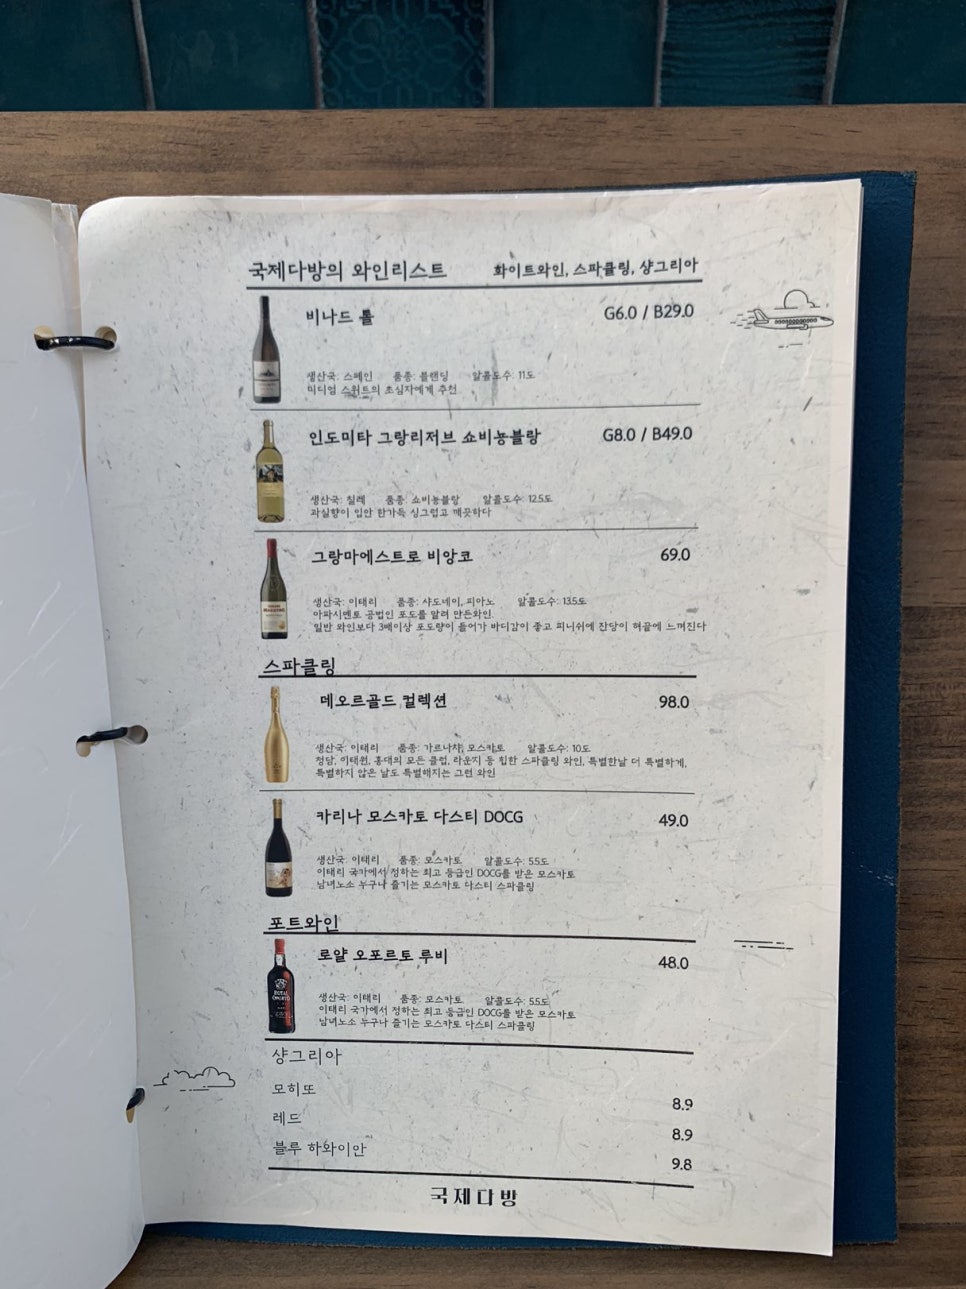 국제다방의 와인리스트 화이트와인, 스파클링, 샹그리아
비나드 톨 G6.0 / B29.0
생산국: 스페인 품종: 블랜딩 알콜도수: 11도
미디엄 스위트의 초심자에게 추천
인도미타 그랑리저브 쇼비뇽블랑 G8.0 / B49.0
생산국: 칠레 품종: 쇼비뇽블랑 알콜도수: 12.5도
과실향이 입안 한가득 싱그럽고 깨끗하다
그랑마에스트로 비앙코 69.0
생산국: 이태리 품종: 샤도네이, 피아노 알콜도수: 13.5도
아파시멘토 공법인 포도를 말려 만든와인
일반 와인보다 3배이상 포도량이 들어가 바디감이 좋고 피니쉬에 잔당이 혀끝에 느껴진다
스파클링
데오르골드 컬렉션 98.0
생산국: 이태리 품종: 가르나챠, 모스카토 알콜도수: 10도
청담, 이태원, 홍대의 모든 클럽, 라운지 등 힙한 스파클링 와인, 특별한날 더 특별하게,
특별하지 않은 날도 특별해지는 그런 와인
카리나 모스카토 다스티 DOCG 49.0
생산국: 이태리 품종: 모스카토 알콜도수: 5.5도
이태리 국가에서 정하는 최고 등급인 DOCG를 받은 모스카토
남녀노소 누구나 즐기는 모스카토 다스티 스파클링
포트와인
로얄 오포르토 루비 48.0
ROYAL
OPORTO
생산국: 이태리 품종: 모스카토 알콜도수: 5.5도
이태리 국가에서 정하는 최고 등급인 DOCG를 받은 모스카토
남녀노소 누구나 즐기는 모스카토 다스티 스파클링
샹그리아
모히또 8.9
레드 8.9
블루 하와이안 9.8
국제다방